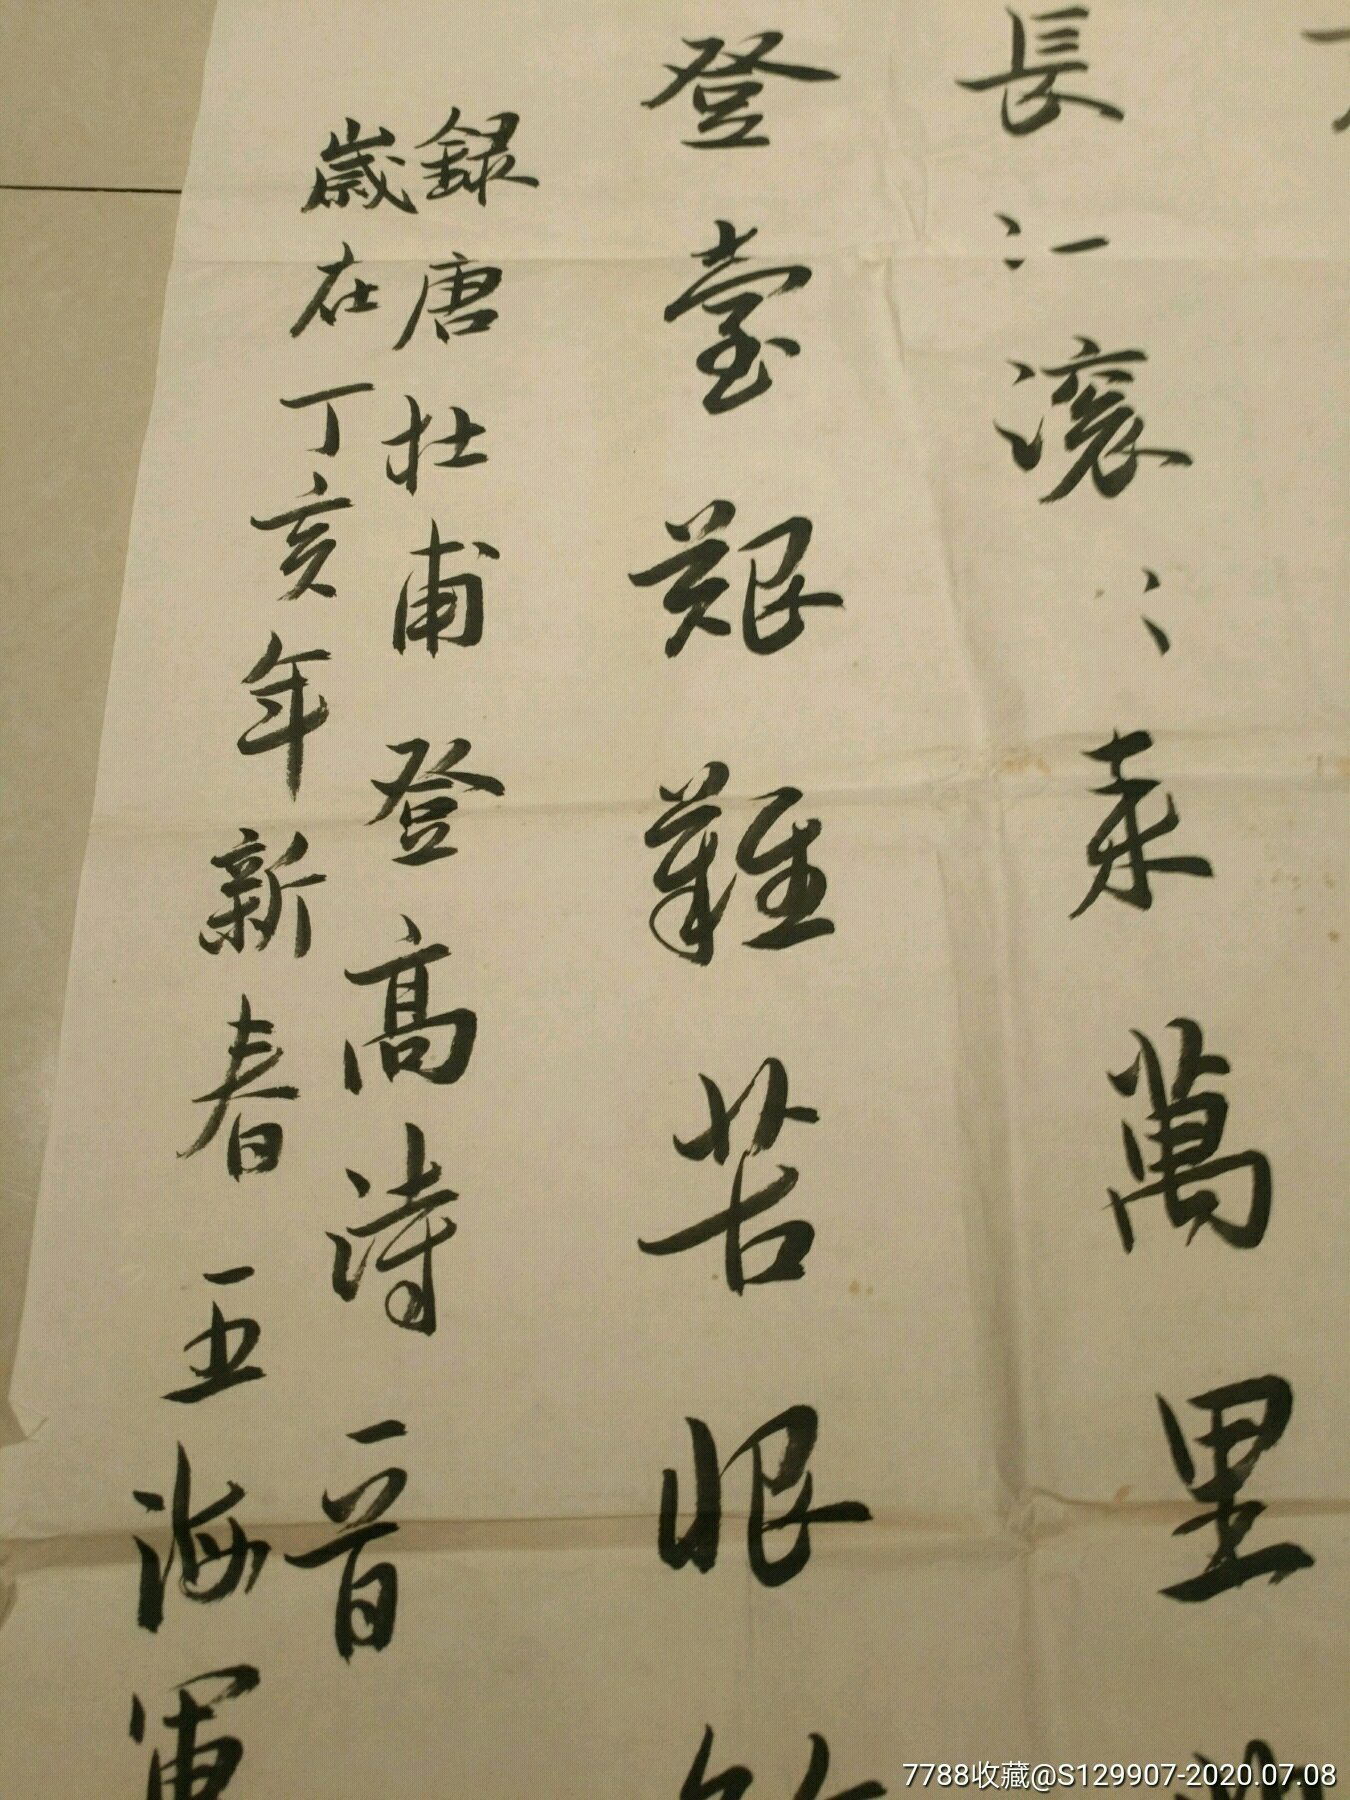 長江滚〻来萬里
登臺艱難苦恨
録唐杜甫登高诗一首
歲在丁亥年新春王海軍
7788收藏@S129907-2020.07.08